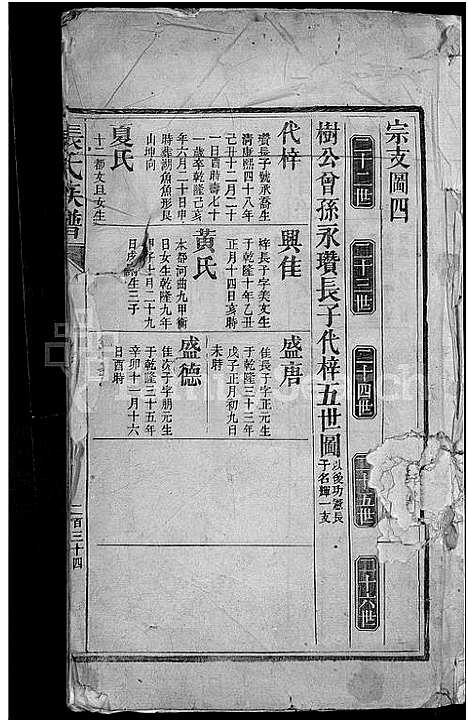 宗支圖四
二十二世
二十三世
二十四世
二十五世
二十六世
樹公曾孫永瓚長子代梓五世圖
以後功憲長
子名輝一支
代梓
瓚長子號承喬生
清康熙四十八年
己丑十二月二十
一日酉時壽七十
一歲卒乾隆己亥
年六月二十日申
時葬湖魚魚形艮
山坤向
夏氏
十二都文旦女生
興佳
梓長子字美文生
于乾隆十年乙丑
正月十四日亥時
黃氏
本都河曲九甲衡
日女生乾隆九年
甲子七月二十九
生三子
盛唐
佳長子字正元生
于乾隆三十三年
戊子正月初九日
未時
盛德
佳次子字朋元生
于乾隆三十五年
辛卯十一月十六
日酉時
張氏族譜
二百三十四